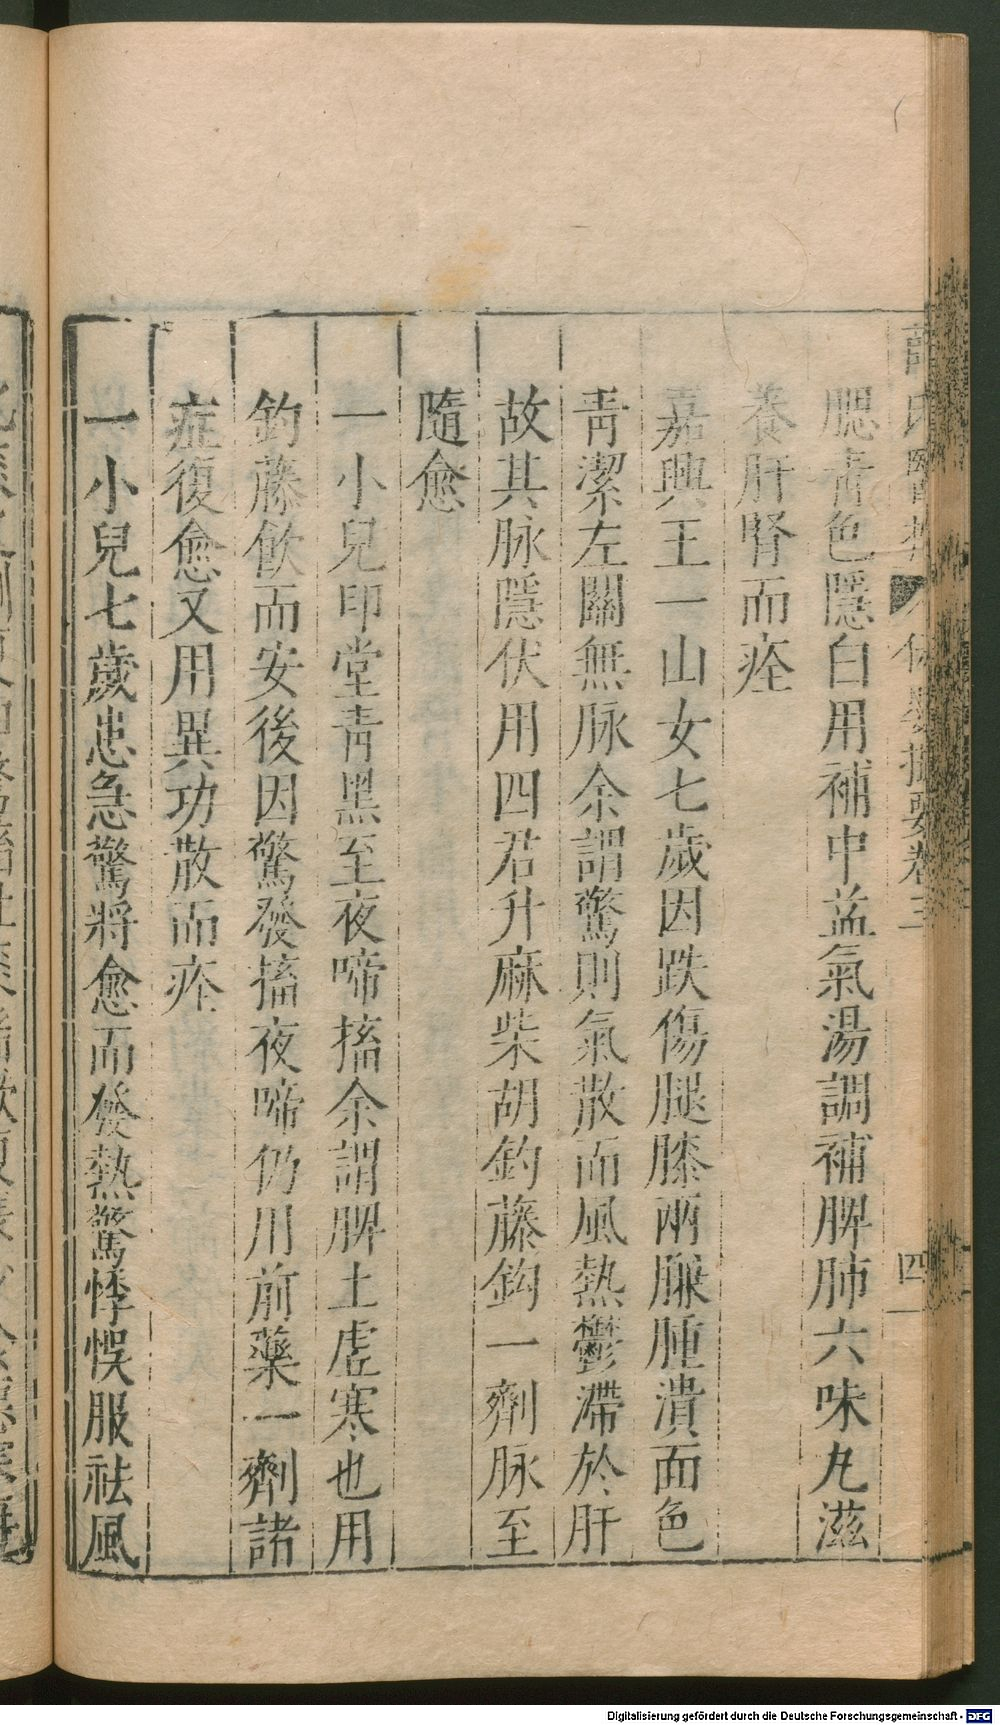 薛氏醫按 保嬰撮要卷三 四
腮靑色隱白用補中益氣湯調補脾肺六味丸滋
養肝腎而痊
嘉興王一山女七歲因跌傷腿膝兩臁腫潰面色
靑潔左關無脉余謂驚則氣散而風熱鬱滯於肝
故其脉隱伏用四君升麻柴胡釣藤鈎一劑脉至
隨愈
一小兒印堂靑黑至夜啼搐余謂脾土虛寒也用
釣藤飮而安後因驚發搐夜啼仍用前藥一劑諸
症復愈又用異功散而痊
一小兒七歲患急驚將愈而發熱驚悸悞服祛風
Digitalisierung gefördert durch die Deutsche Forschungsgemeinschaft - DFG